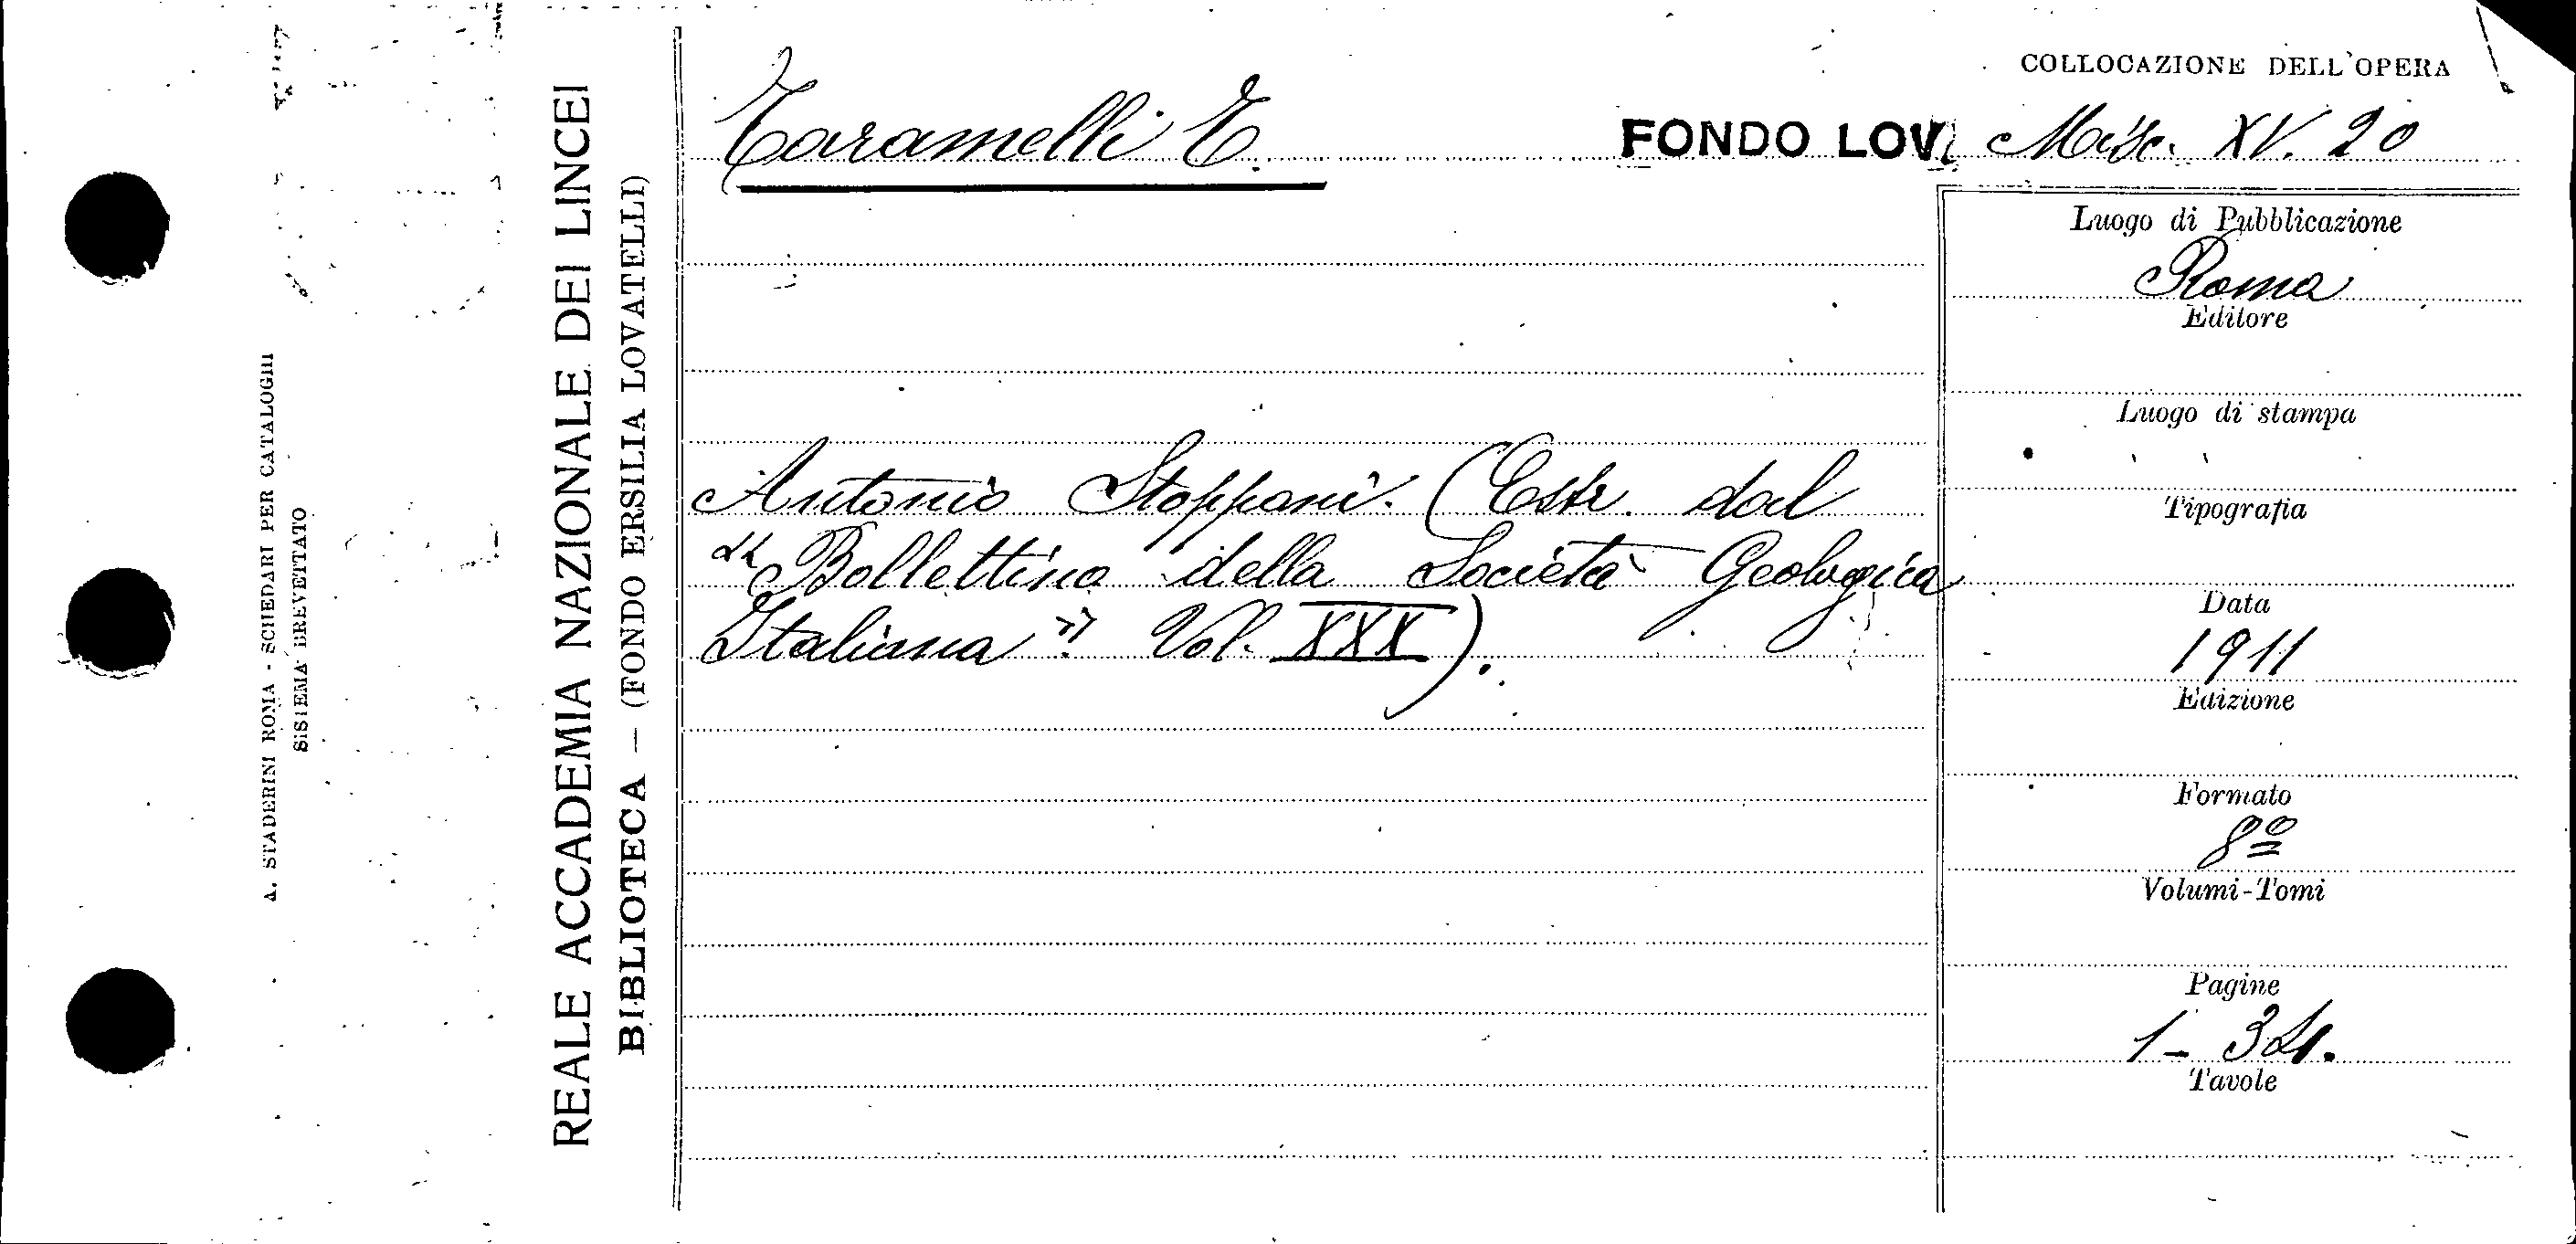 A. STADERINI ROMA - SCHEDARI PER CATALOGHI
SISTEMA BREVETTATO
REALE ACCADEMIA NAZIONALE DEI LINCEI
BIBLIOTECA — (FONDO ERSILIA LOVATELLI)
COLLOCAZIONE DELL'OPERA
Taramelli T. FONDO LOV. Misc. XV. 20
Antonio Stoppani. (Estr. dal
"Bollettino della Società Geologica
Italiana" Vol. XXX).
Luogo di Pubblicazione
Roma
Editore
Luogo di stampa
Tipografia
Data
1911
Edizione
Formato
8º
Volumi-Tomi
Pagine
1-34.
Tavole